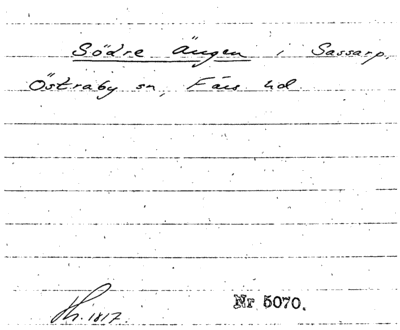 Södre Ängen i Sassarp.
Östraby sn, Färs hd
Sk. 1817.
Nr 5070.